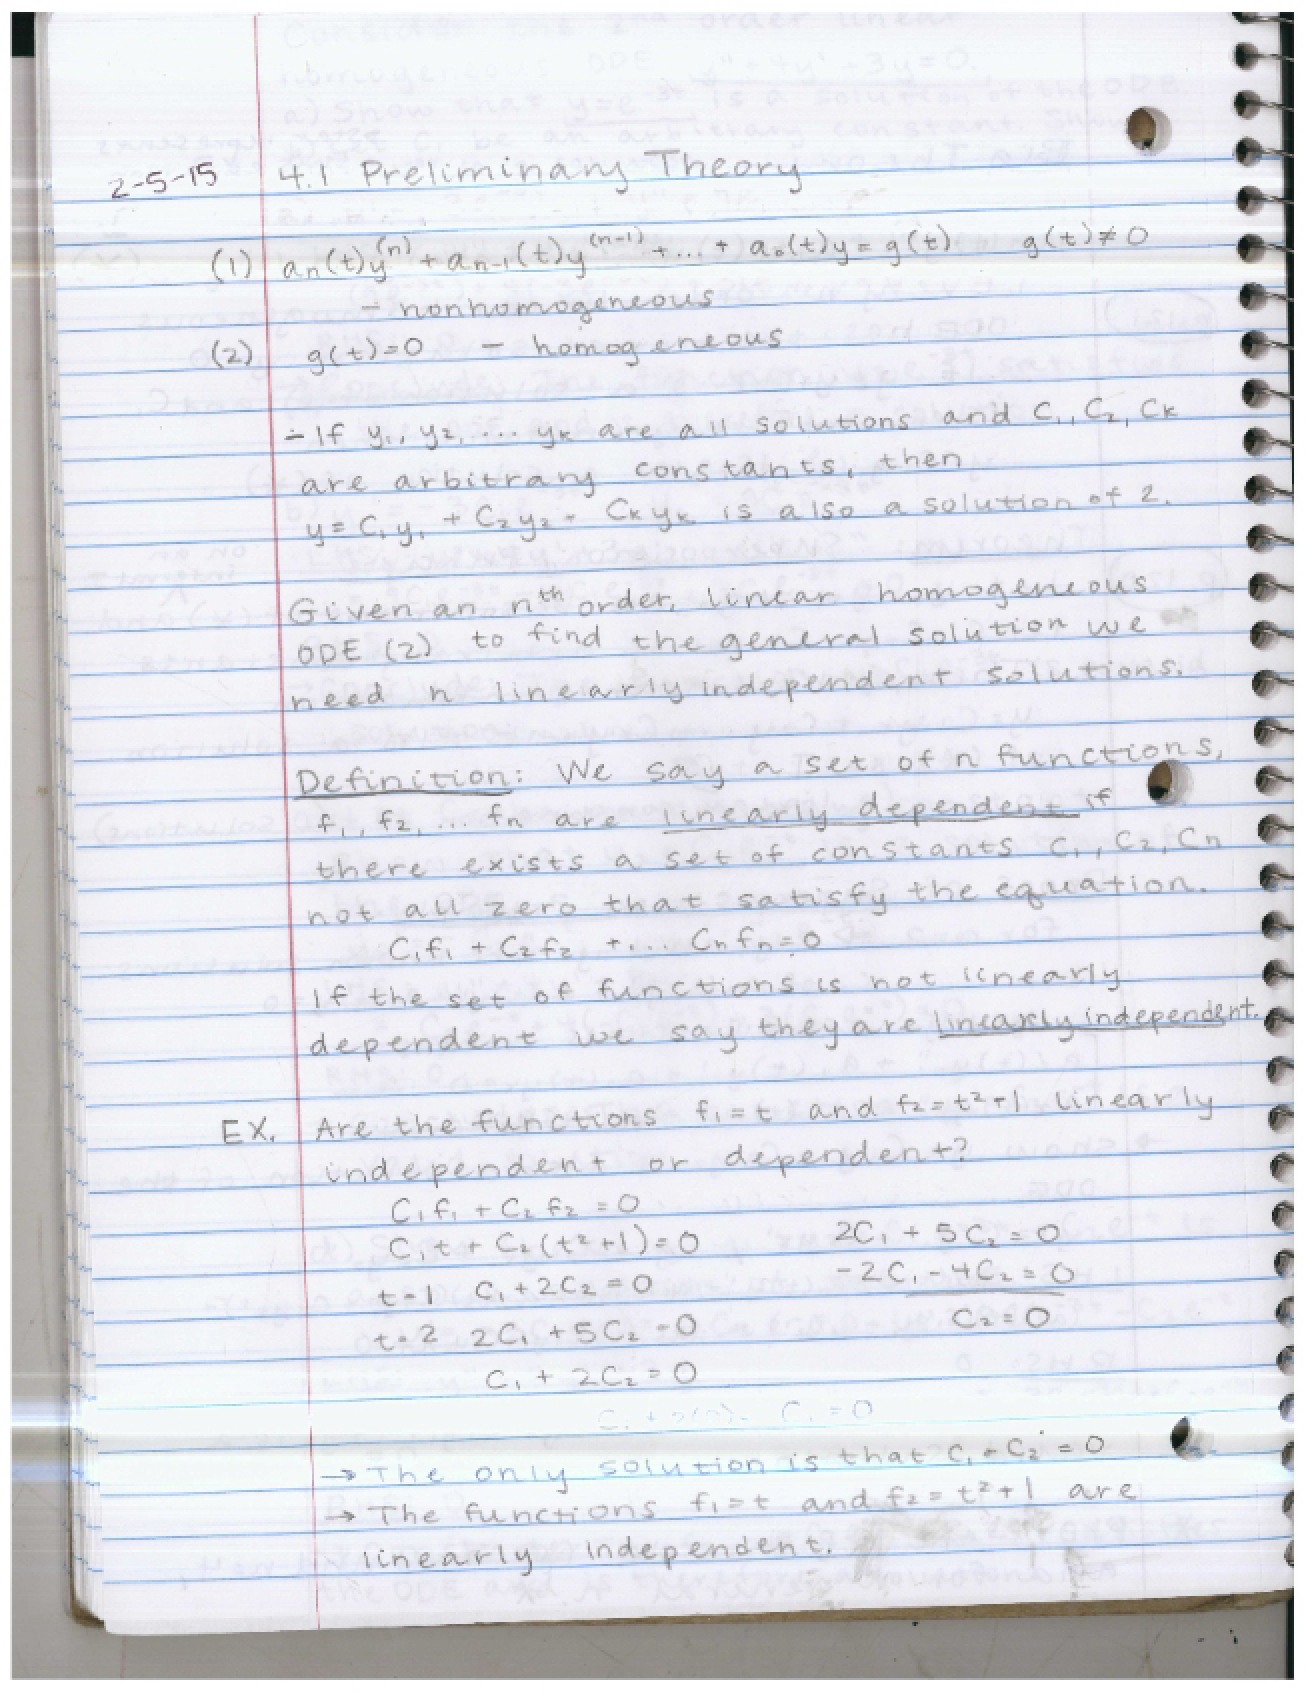 2-5-15 4.1 Preliminary Theory
(1) aₙ(t)y⁽ⁿ⁾ + aₙ₋₁(t)y⁽ⁿ⁻¹⁾ + ... + a₀(t)y = g(t) g(t) ≠ 0
- nonhomogeneous
(2) g(t)=0 - homogeneous
- If y₁, y₂, ... yₖ are all solutions and C₁, C₂, Cₖ
are arbitrary constants, then
y = C₁y₁ + C₂y₂ + Cₖyₖ is also a solution of 2.
Given an nᵗʰ order, linear homogeneous
ODE (2) to find the general solution we
need n linearly independent solutions.
Definition: We say a set of n functions,
f₁, f₂, ... fₙ are linearly dependent if
there exists a set of constants C₁, C₂, Cₙ
not all zero that satisfy the equation.
C₁f₁ + C₂f₂ + ... Cₙfₙ = 0
If the set of functions is not linearly
dependent we say they are linearly independent.
EX. Are the functions f₁=t and f₂=t²+1 linearly
independent or dependent?
C₁f₁ + C₂f₂ = 0
C₁t + C₂(t²+1) = 0 2C₁ + 5C₂ = 0
t=1 C₁ + 2C₂ = 0 -2C₁ - 4C₂ = 0
t=2 2C₁ + 5C₂ = 0 C₂ = 0
C₁ + 2C₂ = 0
C₁ + 2(0) = C₁ = 0
→ The only solution is that C₁ = C₂ = 0
→ The functions f₁=t and f₂=t²+1 are
linearly independent.